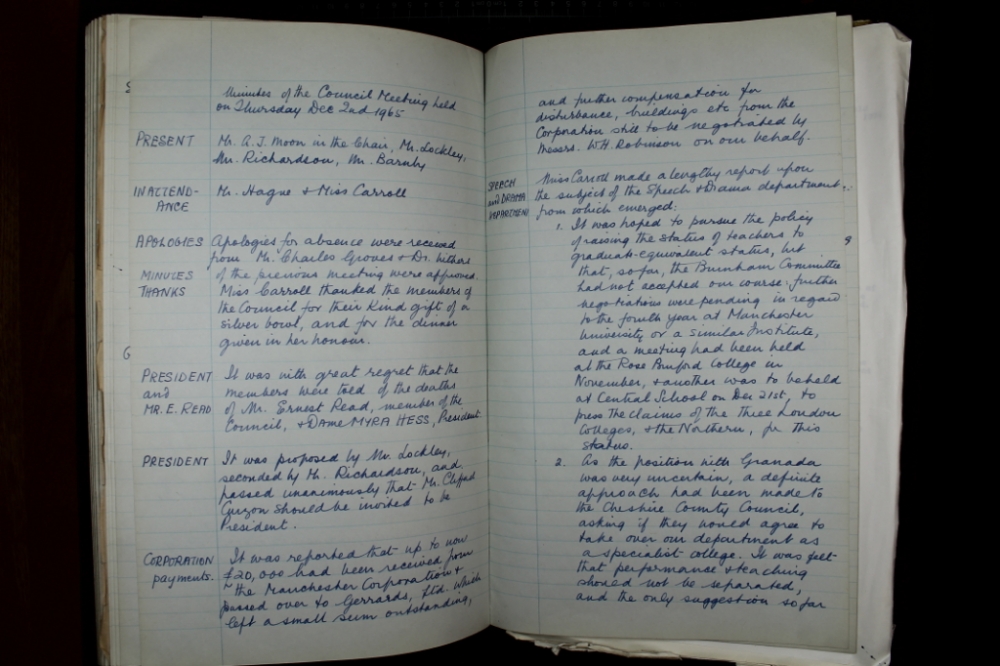 Minutes of the Council Meeting held
on Thursday Dec 2nd 1965
PRESENT Mr. A.J. Moon in the Chair, Mr. Lockley,
Mr. Richardson, Mr. Barnby
IN ATTEND- Mr. Hague & Miss Carroll
ANCE
APOLOGIES Apologies for absence were received
from Mr. Charles Groves & Dr.
MINUTES of the previous meeting were approved.
THANKS Miss Carroll thanked the members of
the Council for their kind gift of a
silver bowl, and for the dinner
given in her honour.
PRESIDENT It was with great regret that the
and members were told of the deaths
MR. E. READ of Mr. Ernest Read, member of the
Council, & DAME MYRA HESS, President.
PRESIDENT It was proposed by Mr. Lockley,
seconded by Mr. Richardson, and
passed unanimously that Mr. Clifford
Curzon should be invited to be
President.
CORPORATION It was reported that up to now
payments. £20,000 had been received from
the Manchester Corporation &
passed over to Gerrards, Ltd. which
left a small sum outstanding,
and further compensation for
disturbance, buildings etc from the
Corporation still to be negotiated by
Messrs. W.H. Robinson on our behalf.
SPEECH Miss Carroll made a lengthy report upon
and DRAMA the subject of the Speech & Drama department,
DEPARTMENT from which emerged:
1. It was hoped to pursue the policy
of raising the status of teachers to
graduate-equivalent status, but
that, so far, the Burnham Committee
had not accepted our course: further
negotiations were pending in regard
to the fourth year at Manchester
University or a similar Institute,
and a meeting had been held
at the Rose Bruford College in
November, & another was to be held
at Central School on Dec 21st, to
press the claims of the Three London
Colleges, & the Northern, for this
status.
2. As the position with Granada
was very uncertain, a definite
approach had been made to
the Cheshire County Council,
asking if they would agree to
take over our department as
a specialist college. It was felt
that performance & teaching
should not be separated,
and the only suggestion so far